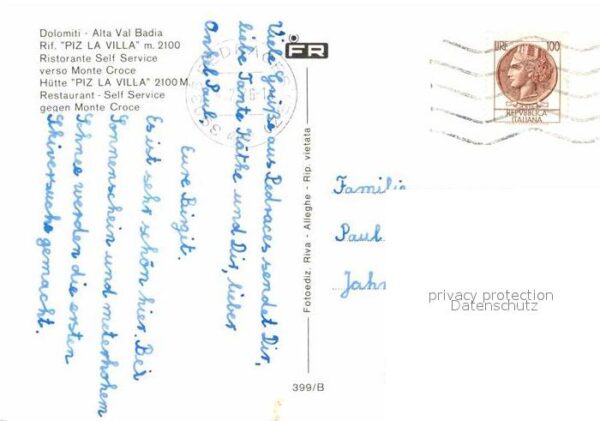 Dolomiti - Alta Val Badia
Rif. "PIZ LA VILLA" m. 2100
Ristorante Self Service
verso Monte Croce
Hütte "PIZ LA VILLA" 2100 M.
Restaurant - Self Service
gegen Monte Croce
FR
LIRE 100
REPVBBLICA
ITALIANA
Viele Grüße aus Pedraces sendet Dir,
liebe Tante Käthe und Dir, lieber
Onkel Paul,
Eure Birgit.
Es ist sehr schön hier. Bei
Sonnenschein und meterhohem
Schnee werden die ersten
Skiversuche gemacht.
Fotoediz. Riva - Alleghe - Rip. vietata
399/B
Familie
Paul
Jahn
privacy protection
Datenschutz